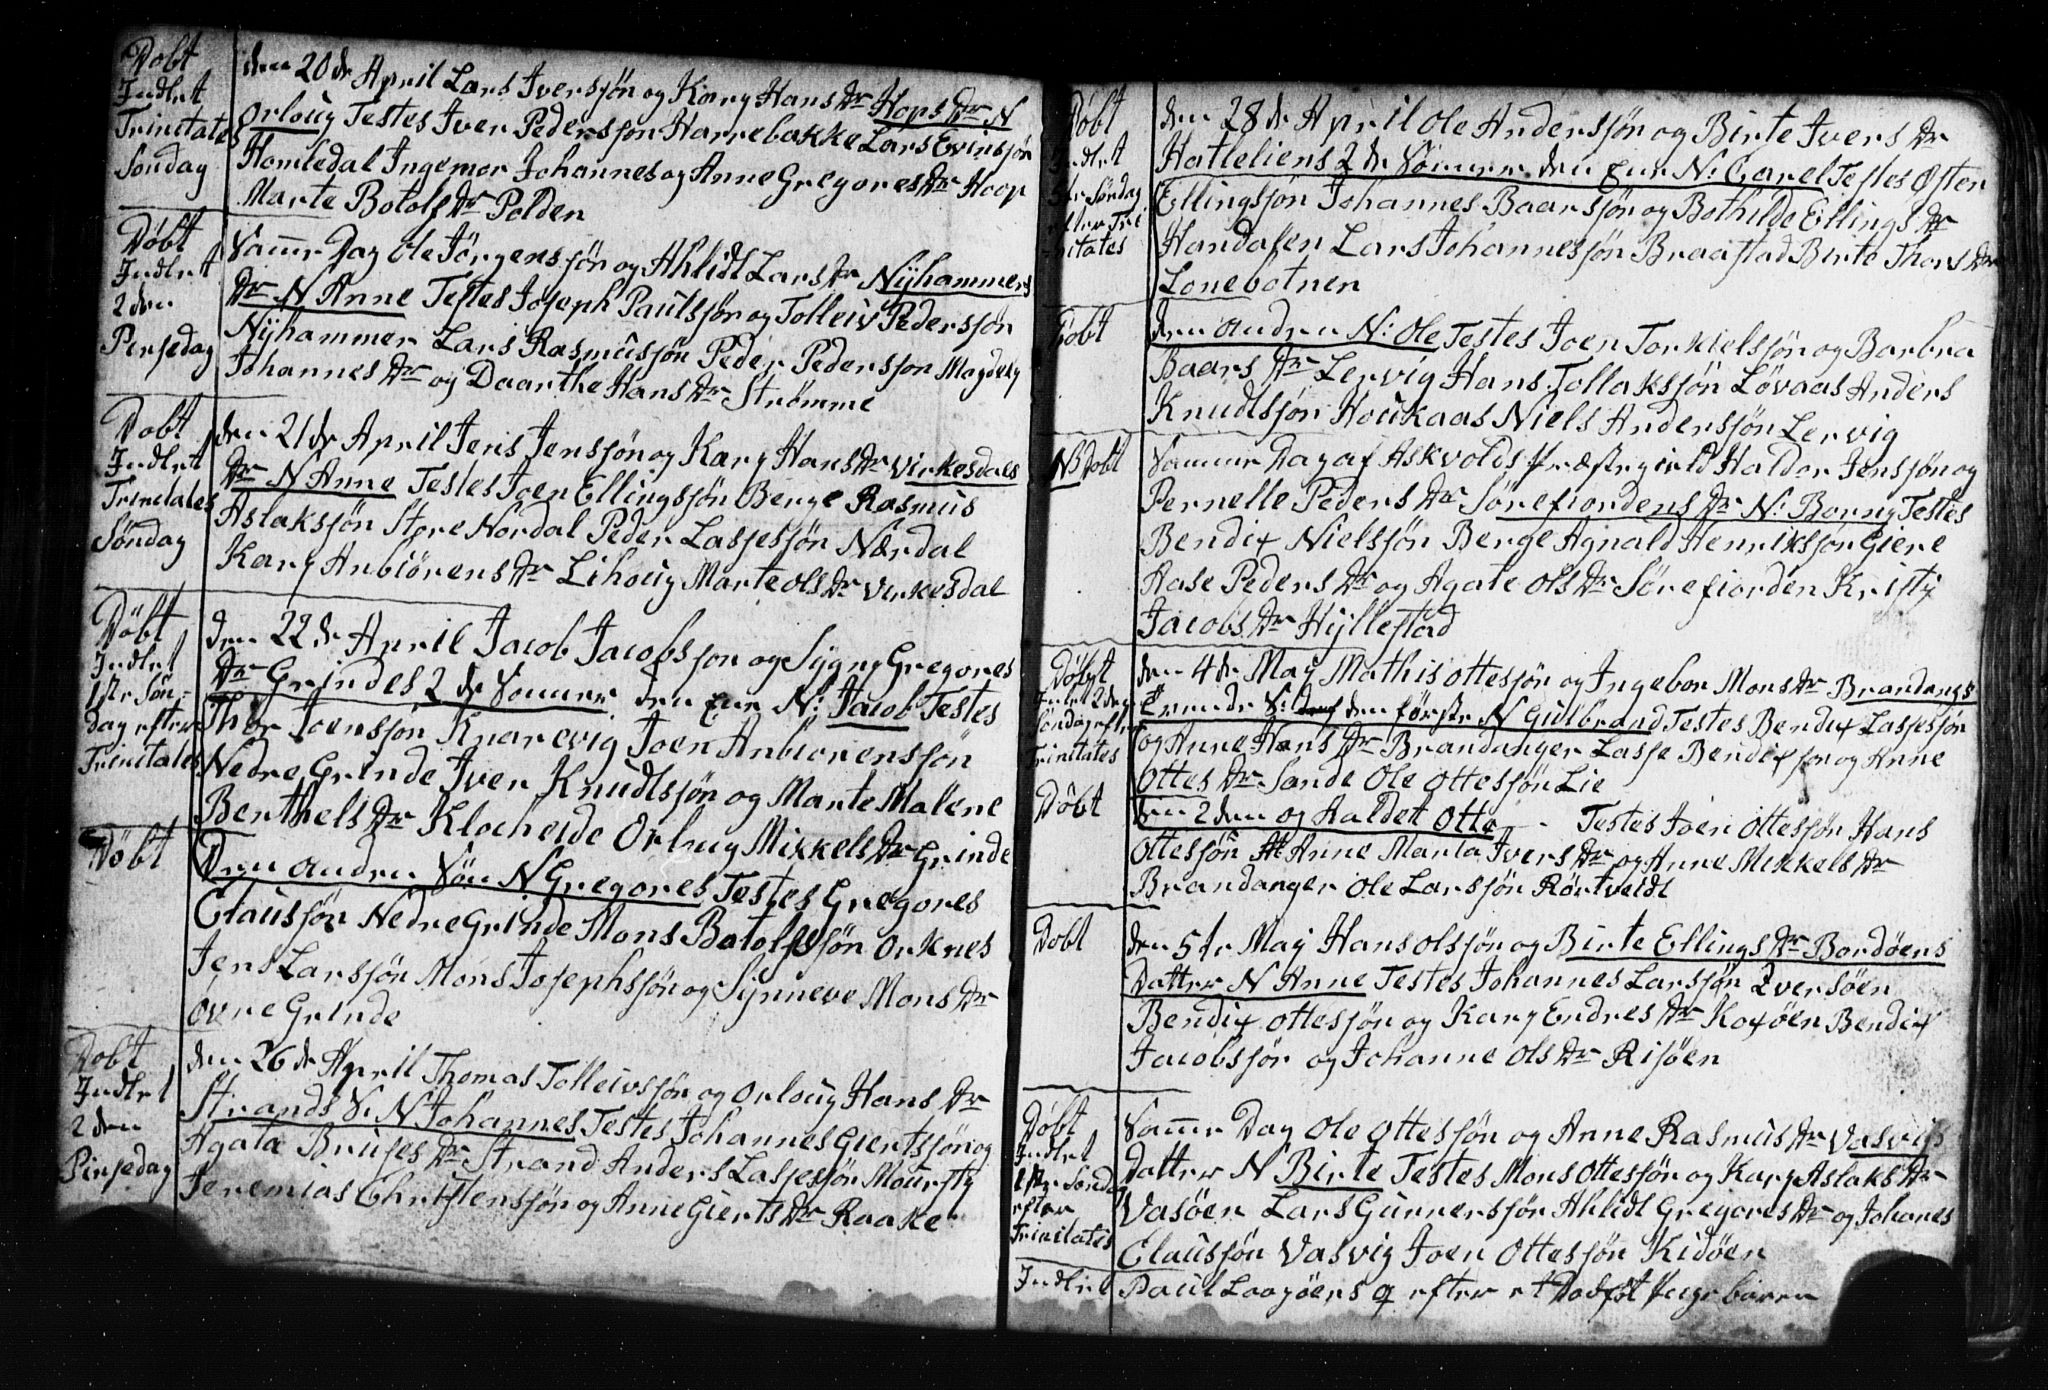 Døbt
Indlet
Trinitates
Søndag
den 20de April Lars Iversjøn og Kary Hans Dr Hops Dr N
Orloug Testes Iver Pedersjøn Harrebakke Lars Evinsjøn
Hamledal Ingemor Johannes og Anne Gregores Dr Hoop
Marte Botolfs Dr Polden
Døbt
Indlet
2den
Pinsedag
Samme Dag Ole Jørgensjøn og Ahlidt Lars Dr Nyhammers
Dr N Anne Testes Joseph Paulsjøn og Tolleiv Pedersjøn
Nyhammer Lars Rasmussjøn Peder Pedersjøn Magdely
Johannes Dr og Daarthe Hans Dr Strømme
Døbt
Indlet
Trinitates
Søndag
den 21de April Jens Jensjøn og Kary Hans Dr Virkesdals
Dr N Anne Testes Joen Ellingsjøn Berge Rasmus
Aslaksjøn Store Nordal Peder Lassesjøn Nærdal
Kary Anbiørens Dr Lihoug Marte Ols Dr Verkesdal
Døbt
Indlet
1ste Søn-
Dag efter
Trinitates
den 22de April Jacob Jacobsjon og Sygny Gregores
Dr Grindes 2de Sønner den Ene N: Jacob Testes
Thor Joensjøn Knarevig Joen Anbiorensjøn
Nedre Grinde Iver Knudtsjøn og Marte Malene
Berthels Dr Klocheide Orloug Mikkels Dr Grinde
Døbt
Den anden Søn N Gregores Testes Gregores
Claussjøn Nedre Grinde Mons Botolfssjøn Orknes
Jens Larssjøn Mons Josephssjøn og Synneve Mons Dr
øvre Grinde
Døbt
Indlet
2den
Pinsedag
den 26de April Thomas Tolleivssjøn og Orloug Hans Dr
Strands S: N Johannes Testes Johannes Giertssjøn og
Agata Bruses Dr Strand Anders Lassesjøn Moursty
Jeremias Christensjøn og Anne Gierts Dr Raake
Døbt
Indlet
5te Søndag
efter Tri
nitates
den 28de April Ole Andersjøn og Birte Ivers Dr
Hatleliens 2de Sønner den Ene N: Carel Testes Østen
Ellingsjøn Johannes Baarsjøn og Bothilde Ellings Dr
Handalen Lars Johannessjøn Braastad Birte Thors Dr
Lonebotnen
Døbt
den anden N: Ole Testes Joen Torkielsjøn og Barbra
Baars Dr Lervig Hans Tollaksjøn Løvaas Anders
Knudtsjøn Houkaas Niels Andersjøn Lervig
NB Døbt
Samme Dag af Askvolds Præstegield Haldor Jensjøn og
Pernelle Peders Dr Sørefiordens Dr N: Borny Testes
Bendix Nielsjøn Berge Agnald Henriksjøn Giere
Aase Peders Dr og Agate Ols Dr Sørefiorden Kristy
Jacobs Dr Hyllestad
Døbt
Inlet 2den
Søndag efter
Trinitates
den 4de May Mathis Ottesjøn og Ingebor Mons Dr Brandangs
Trende S: den første N Gulbrand Testes Bendix Lassesjøn
og Anne Hans Dr Brandanger Lasse Bendixsjøn og Anne
Ottes Dr Sande Ole Ottesjøn Lie
Døbt
den 2den og Kaldet Otte - Testes Joen Ottesjøn Hans
Ottesjøn Anne Marta Ivers Dr og Anne Mikkels Dr
Brandanger Ole Larssjøn Rørtveidt
Døbt
den 5te May Hans Olsjøn og Birte Ellings Dr Bordøens
Datter N Anne Testes Johannes Larssjøn Tversøen
Bendix Ottesjøn og Kary Endres Dr Koxøen Bendix
Jacobssjør og Johanne Ols Dr Risøen
Døbt
Indlet
1ste Sønda
efter
Trinitates
Samme Dag Ole Ottesjøn og Anne Rasmus Dr Vasvigs
Datter N Birte Testes Mons Ottesjøn og Kary Aslaks Dr
Vasøen Lars Gunnersjør Ahlidt Gregores Dr og Johanes
Claussjøn Vasvig Joen Ottesjøn Kidøen
Indlet
Paul Laagøers q efter et Dødføt Pigebaren